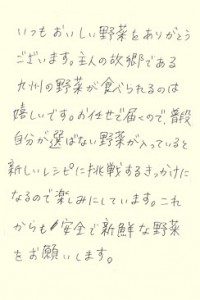 いつもおいしい野菜をありがとう
ございます。主人の故郷である
九州の野菜が食べられるのは
嬉しいです。お任せで届くので、普段
自分が選ばない野菜が入っていると
新しいレシピに挑戦するきっかけに
なるので楽しみにしています。これ
からも安全で新鮮な野菜
をお願いします。